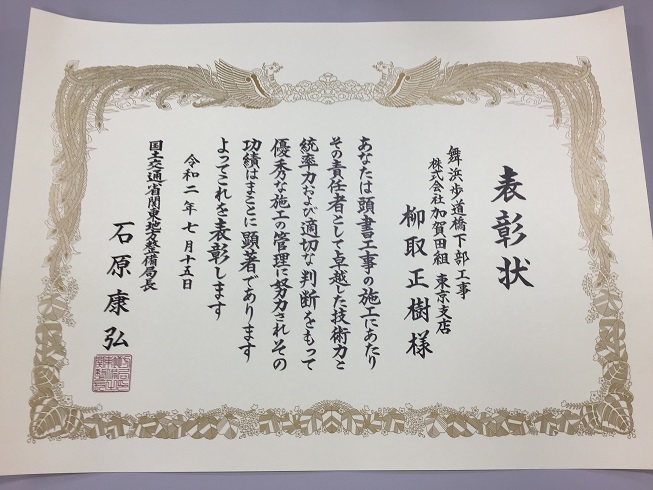 表彰状
舞浜歩道橋下部工事
株式会社加賀田組 東京支店
柳取正樹様
あなたは頭書工事の施工にあたり
その責任者として卓越した技術力と
統率力および適切な判断をもって
優秀な施工の管理に努力されその
功績はまことに顕著であります
よってこれを表彰します
令和二年七月十五日
国土交通省関東地方整備局長
石原康弘